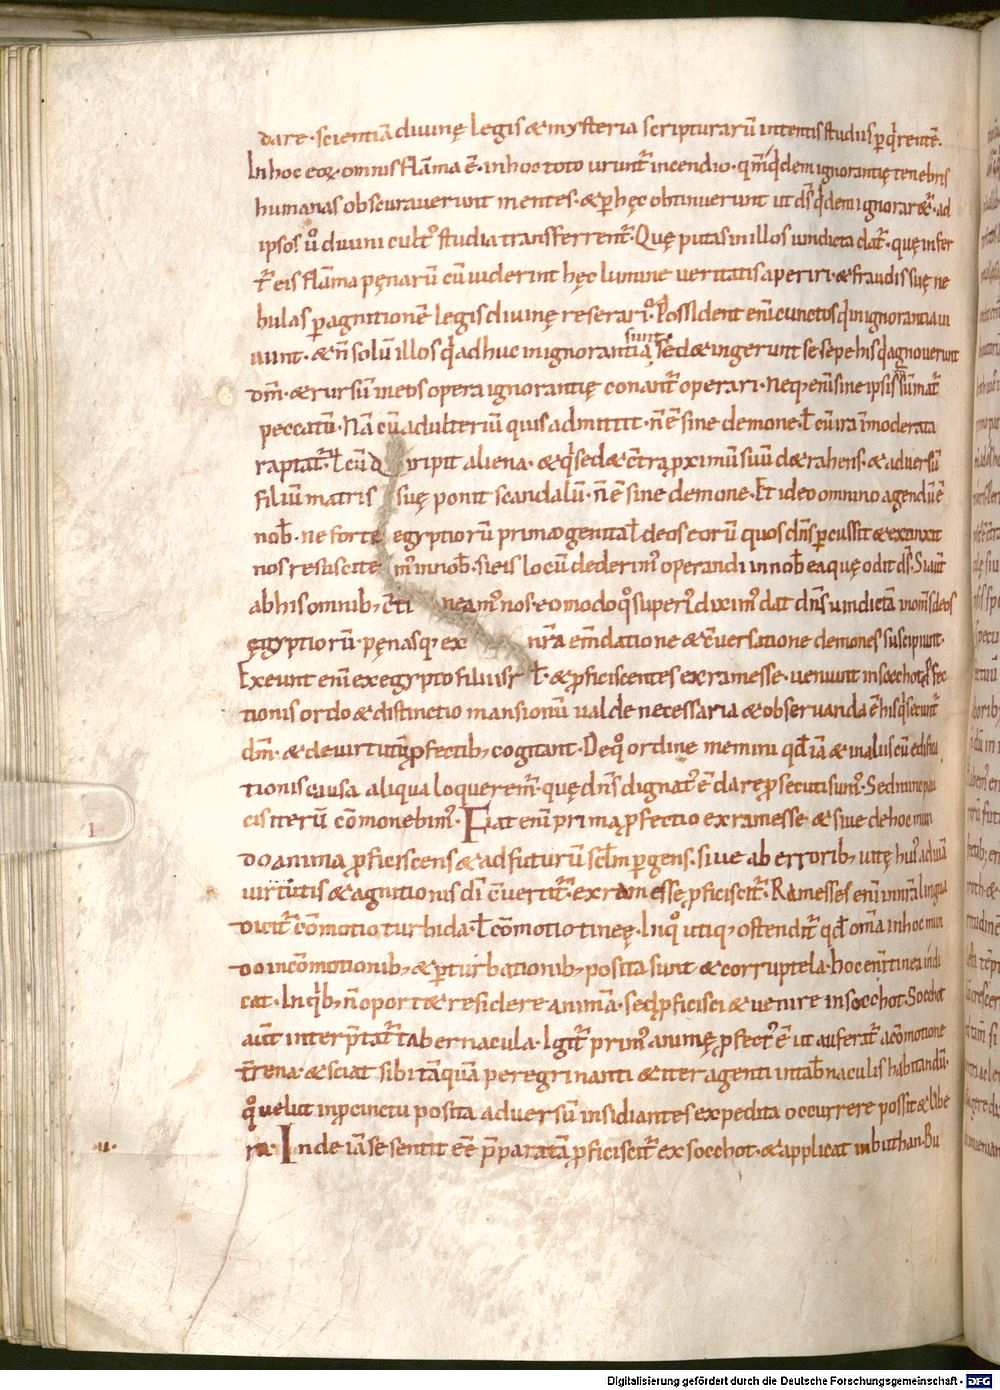 dare · scientiā diuinę legis & mysteria scripturarū intentis studiis ꝑq̇rentē.
In hoc eoꝝ · omnis flāma ē · in hoc toto urunt̄ incendio · qm̄ q̇dem ignorantię tenebris
humanas obscurauerunt mentes · & ꝑ hęc obtinuerunt ut dš q̇dem ignorar&ur̄ · ad
ipsos ů diuini cultꝰ studia transferrent̄. Quę putas in illos uindicta dat̄ · quę infer
t̄ eis flāma pęnarū cū uiderint hęc lumine ueritatis aperiri · & fraudis suę ne
bulas ꝑ agnitionē legis diuinę reserari. Possident enī cunctos q̇ in ignorantia ui
uunt · & n̄ solū illos q̇ adhuc in ignorantia sunt sed & ingerunt se sepe his q̇ agnouerunt
dm̄ · & rursū in eos opera ignorantię conant̄ operari · Neqꝫ enī sine ipsis sūmat̄
peccatū · Nā cū adulteriū quis admittit · n̄ ē sine demone · ł cū ira īmoderata
raptat̄ · ł cū d iripit aliena · & q̇ sed& c̄tra ꝓximū suū d&rahens · & aduersū
filiū matris suę ponit scandalū · n̄ ē sine demone · Et ideo omnino agendū ē
nob̄ · ne forte egyptiorū primogenita ł deos eorū quos dn̄s ꝑcussit & extinxit
nos resuscitemꝰ in nob̄ · si eis locū dederimꝰ operandi in nob̄ ea quę odit dš. Si aut̄
ab his omnibꝫ c̄tineamꝰ nos · eo modo q̊ superꝰ diximꝰ dat dn̄s uindictā in om̄s deos
egyptiorū · pęnasqꝫ ex nr̄a em̄datione & c̄uersatione demones suscipiunt ·
Exeunt enī ex egypto filii isrł · & ꝓficiscentes ex ramesse · ueniunt in socchot. Pfec
tionis ordo & distinctio mansionū ualde necessaria & obseruanda ē his q̇ secunt̄
dm̄ · & de uirtutū ꝓfectibꝫ cogitant · De q̊ ordine memini qđ iā & in aliis cū edifica
tionis causa aliqua loqueremꝰ · quę dn̄s dignatꝰ ē dare ꝓsecuti sumꝰ · Sed nunc pau
cis iterū cōmonebimꝰ · Fiat enī prima ꝓfectio ex ramesse · & siue de hoc mun
do anima ꝓficiscens & ad futurū scl̄m pergens · siue ab erroribꝫ uitę huiꝰ ad uiā
uirtutis & agnitionis dī c̄uertit̄ · ex ramesse ꝓficiscit̄. Ramesses enī in nr̄a lingua
dicit̄ cōmotio turbida · ł cōmotio tineę · In q̊ utiqꝫ ostendit̄ qđ om̄ia in hoc mun
do in cōmotionibꝫ & ꝑturbationibꝫ posita sunt & corruptela · hoc enī tinea indi
cat · In q̇bꝫ n̄ oport& residere animā · sed ꝓficisci & uenire in socchot · Socchot
aūt interp̄tat̄ tabernacula · Igit̄ primꝰ animę ꝓfectꝰ ē ut auferat̄ a cōmotione
t̄rena · & sciat sibi tāquā peregrinanti & iter agenti in tab̄naculis habitandū ·
q̊ uelut in ꝓcinctu posita aduersū insidiantes expedita occurrere possit & libe
ra · Inde iā se sentit eē p̄paratā ꝓficiscit̄ ex socchot · & applicat in buthan · Bu
Digitalisierung gefördert durch die Deutsche Forschungsgemeinschaft - DFG